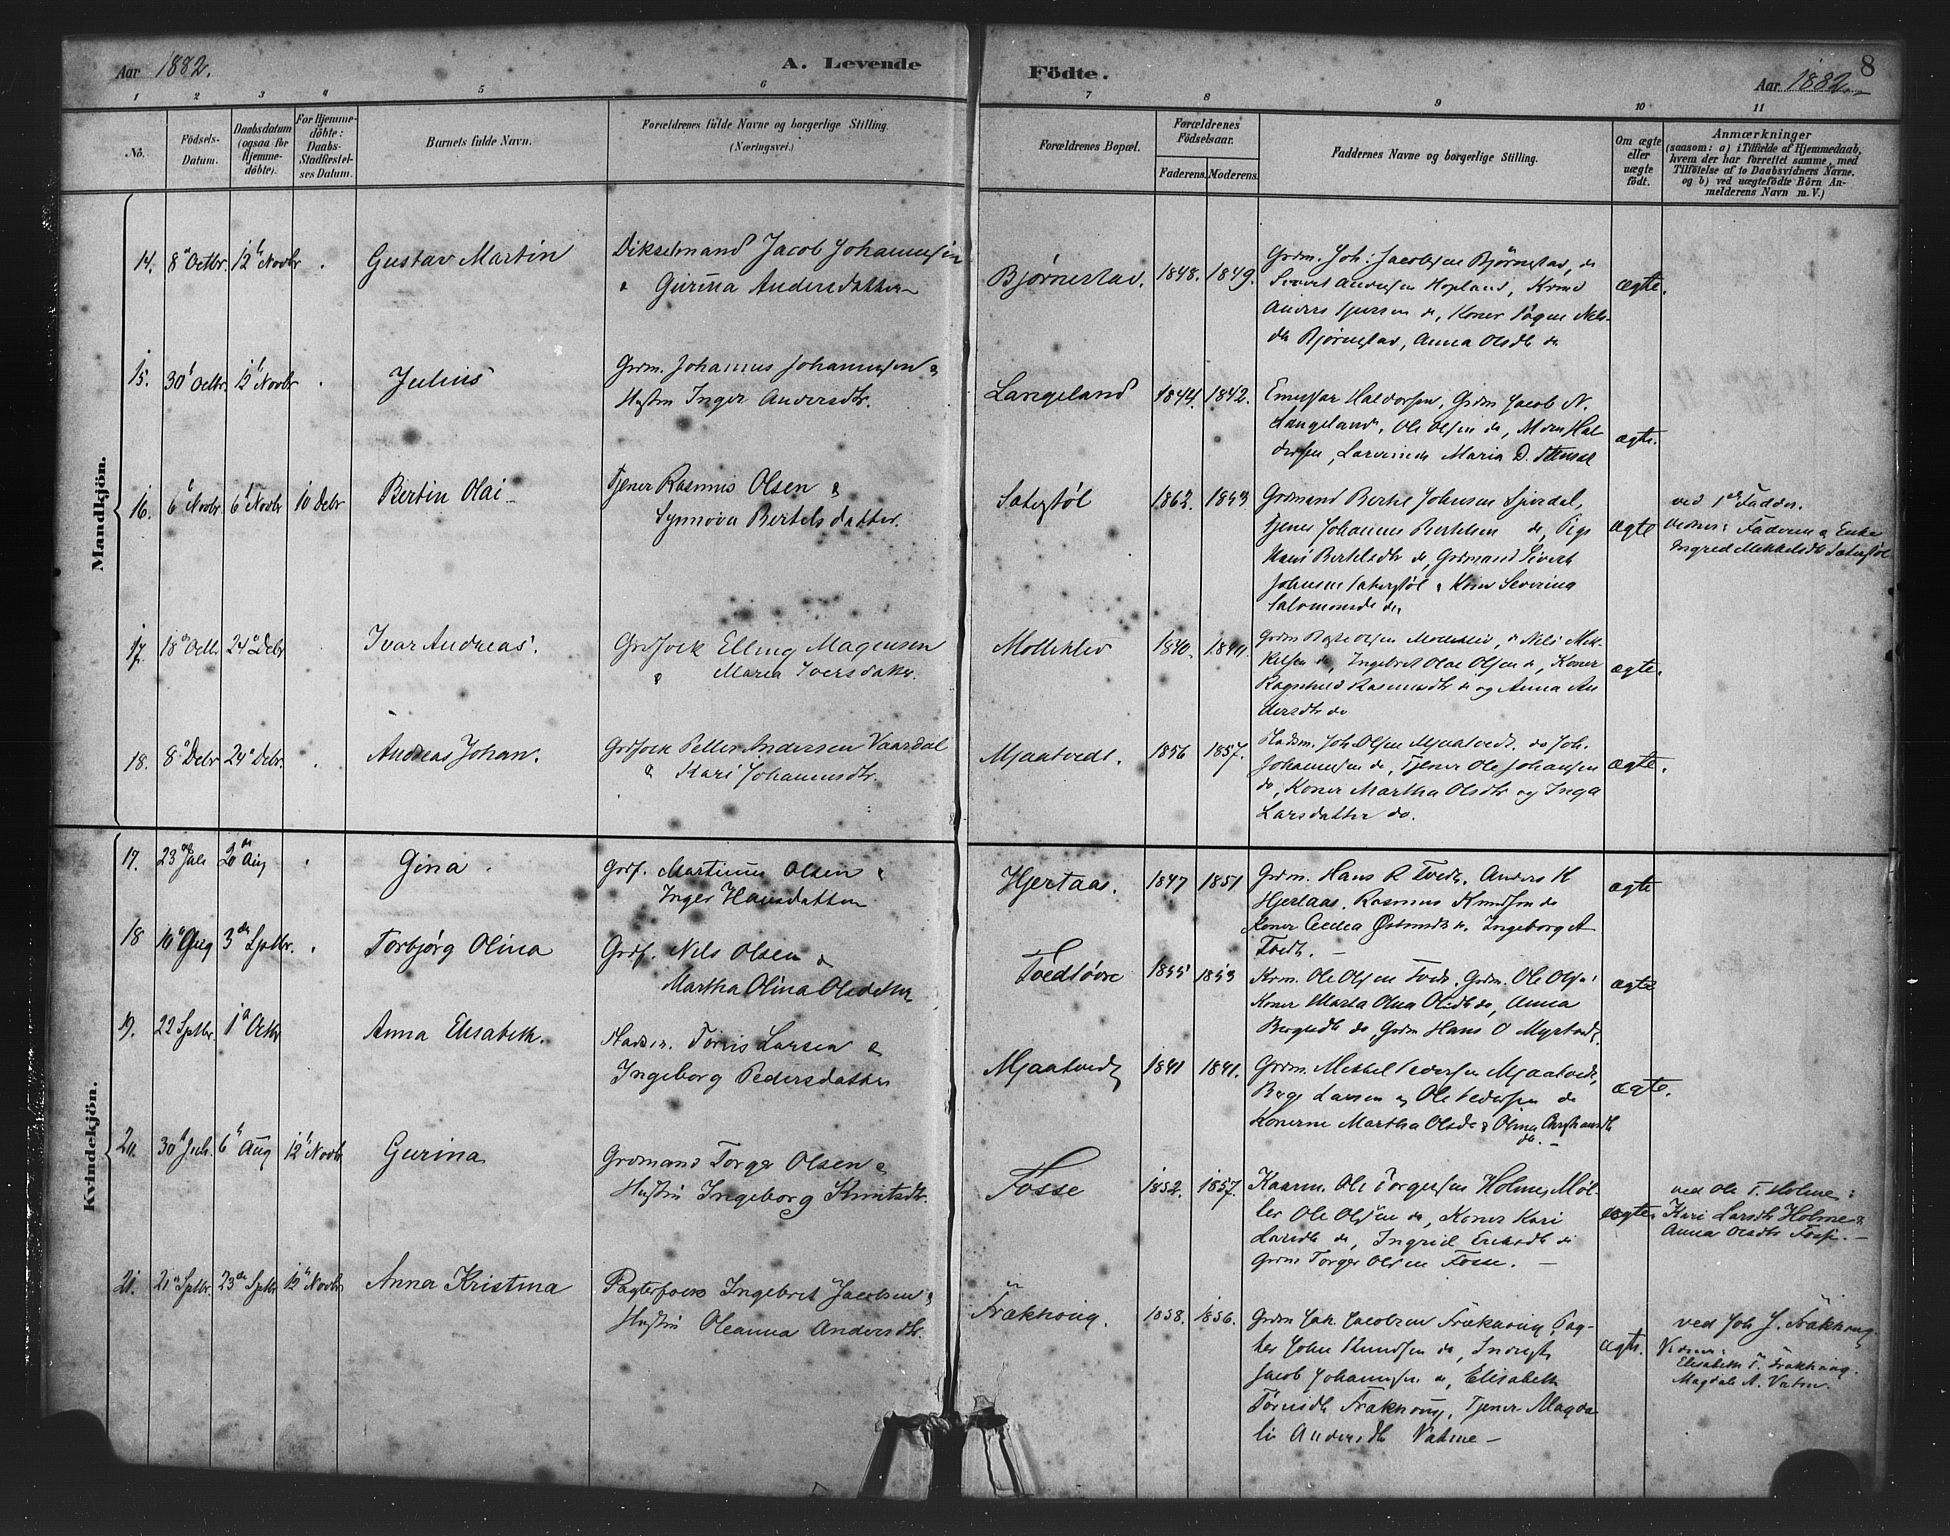 Aar 1882.
A. Levende
Födte.
Aar 1882
8
1
2
3
4
5
6
7
8
9
10
11
No.
Födsels-
Datum.
Daabsdatum
(ogsaa for
Hjemme-
döbte).
For Hjemme-
döbte:
Daabs-
Stadfæstel-
ses Datum.
Barnets fulde Navn.
Forældrenes fulde Navne og borgerlige Stilling.
(Næringsvei.)
Forældrenes Bopæl.
Forældrenes
Födselsaar.
Faderens.
Moderens.
Faddernes Navne og borgerlige Stilling.
Om ægte
eller
uægte
födt.
Anmærkninger
(saasom: a) i Tilfælde af Hjemmedaab,
hvem der har forrettet samme, med
Tilföielse af to Daabsvidners Navne,
og b) ved uægtefödte Börn An-
melderens Navn m. V.)
Mandkjön.
14. 8 Octbr. 12 Novbr
Gustav Martin
Jacob Johannesen
Gurina Andersdatter
Bjørnestav. 1848. 1849.
Grdm. Joh: Jacobsen Bjørnestav, do
Sivert Andersen Hopland,
Anders do, Koner Nels-
dtr Bjørnestav, Anna Olsdtr do
ægte.
15. 30 Octbr. 12 Novbr
Julius
Grdm. Johannes Johannesen &
Hustru Inger Andersdtr.
Langeland 1844. 1842.
Haldorsen, Grdm Jacob N.
Langeland, Ole Olsen do, Hal
dorsen, Maria D.
ægte.
16. 6 Novbr 6 Novbr 10 Debr
Bertin Olai
Tjener Rasmus Olsen &
Synnøva Bertelsdatter.
Saterstøl 1862. 1853
Grdmand Bertel Johnsen
Tjener Johannes Bertelsen do, Pige
Bertelsdtr do, Grdmand Sivert
Johnsen Saterstøl & Kone Severina
Salomonsd do,
ægte
ved 1ste Fadder.
Vidner: Faderen & Enke
Ingred Mikkelsdtr Saterstøl
17. 18 Octb. 24 Debr
Ivar Andreas.
Grdfolk Elling Magnesen
& Maria Iversdatter.
Molleklev 1840. 1840.
Grdm Olsen Molleklev, & Nels Mik-
kelsen do, Ingebret Olsen do, Koner
Ragnhild Rasmusdtr do og Anna An
dersdtr do
ægte.
18. 8 Debr 24 Debr.
Andreas Johan.
Grdfolk Petter Andersen Vaardal
& Kari Johannesdtr.
Mjaatvedt. 1856 1857.
Husm. Joh. Olsen Mjaatvedt. do Joh.
Johannesen do, Tjener Ole Johansen
do, Koner Martha Olsdtr og Inga
Larsdatter do.
ægte.
Kvindekjön.
17. 23 Juli 20 Aug
Gina.
Grdf. Martinus Olsen &
Inger Hansdatter
Hjertaas. 1847 1851
Grdm. Hans R Tvedt. Anders K
Hjertaas. Rasmus Knudsen do
Koner Cecilia do, Ingeborg A
Tvedt. —
ægte
18 10 Aug 3 Septbr.
Torbjørg Olina
Grdf. Nels Olsen &
Martha Olina Olsdatter
1855 1853
Krm. Ole Olsen Tvedt. Grdm. Ole Olsen
Koner Marta Olina Olsdtr do, Anna
do, Grdm Hans O Myrtvedt.
ægte
19. 22 Septbr. 1 Octbr
Anna Elisabeth.
Husm. Tøris Larsen &
Ingeborg Pedersdatter
Mjaatvedt 1841 1841.
Grdm. Mikkel Iversen Mjaatvedt,
Larsen og Ole Pedersen do
Konerne Martha Olsd & Olina Christiansdtr
do. —
ægte.
20. 30 Juli. 6 Aug 12 Novbr
Gurina
Grdmand Torger Olsen &
Hustru Ingeborg Knutsdtr.
Fosse 1852. 1857.
Kaarm. Ole Torgersen Holme, Møl-
ler Ole Olsen do, Koner Kari
Larsdtr do, Ingrid do
Grdm Torger Olsen Fosse. —
ægte.
ved Ole T. Holme:
Kari Larsdtr Holme &
Anna Olsdtr Fosse. —
21. 21 Septbr. 23 Septbr 12 Novbr
Anna Kristina
Pagterfolk Ingebret Jacobsen &
Hustru Oleanna Andersdtr.
Frækhoug. 1858. 1856.
Grdm Joh. Jacobsen Frækhoug, Pag-
ter John Knudsen do,
Jacob Johannesen do, Elisabeth
Tørrisdtr Frækhoug, Tjener Magda
li Andersdtr Vatne —
ægte.
ved Joh J. Frækhoug.
Vidner:
Elisabeth T. Frækhoug.
Magdali A. Vatne.